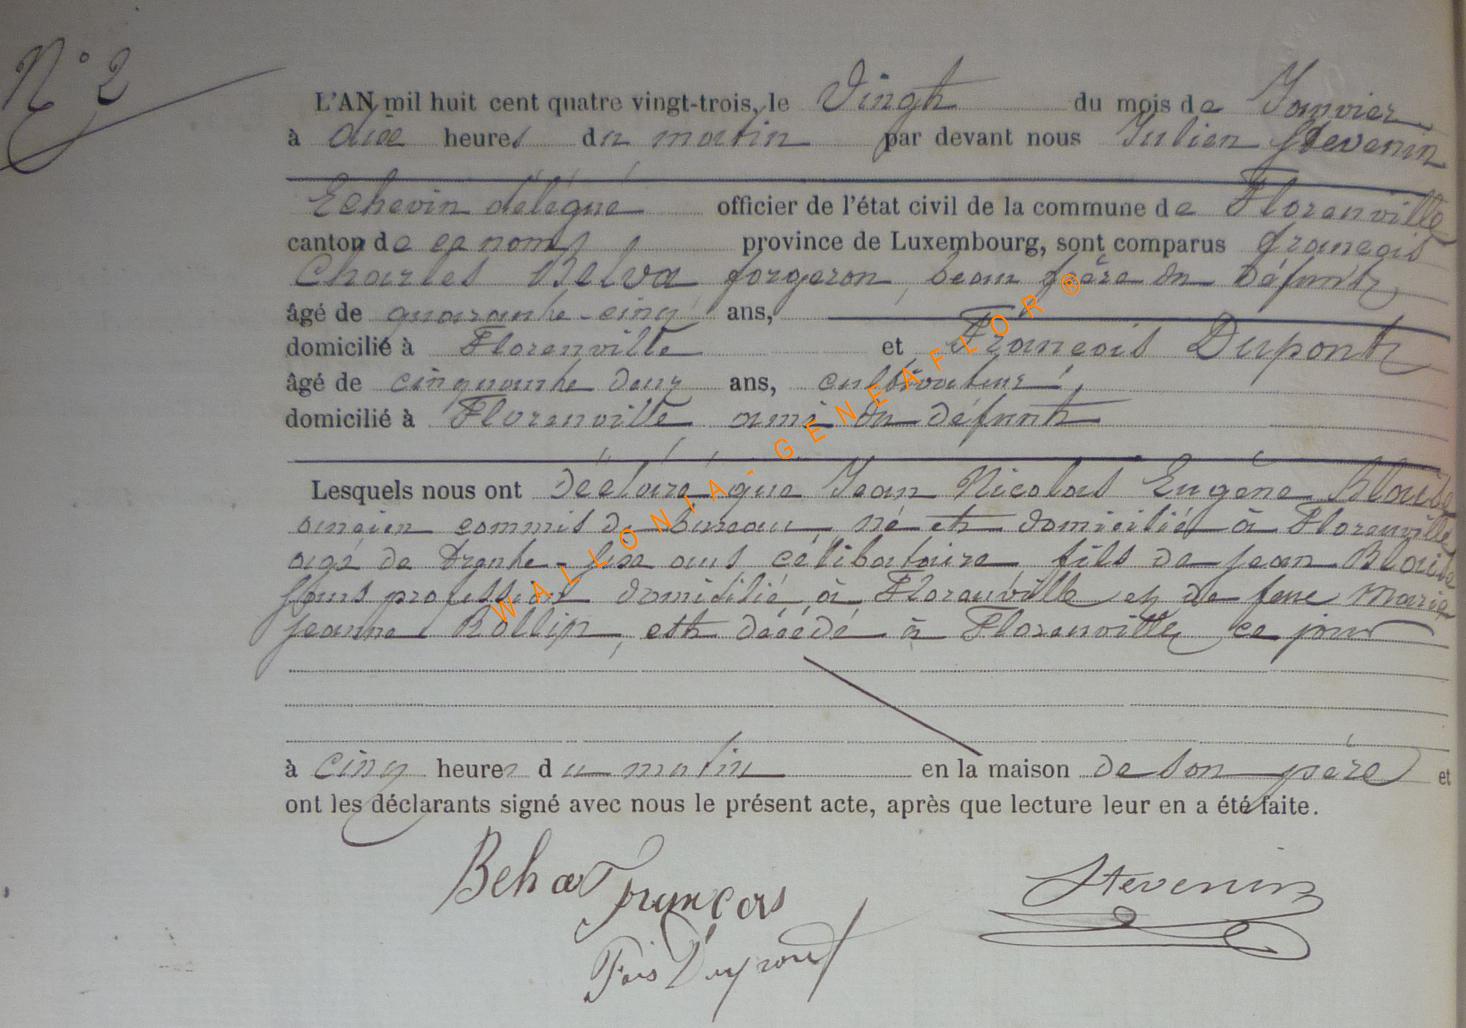 N° 2
L'AN mil huit cent quatre vingt-trois, le Vingt du mois de Janvier
à dix heures du matin par devant nous Julien Stevenin
Echevin délégué officier de l'état civil de la commune de Florenville
canton de ce nom, province de Luxembourg, sont comparus François
Charles Belva forgeron, beau frère du défunt
âgé de quarante-cinq ans,
domicilié à Florenville et François Dupont
âgé de cinquante deux ans, cultivateur,
domicilié à Florenville ami du défunt
Lesquels nous ont déclaré que Jean Nicolas Eugène Blaise
ancien commis de bureau, né et domicilié à Florenville
agé de trente-six ans célibataire fils de Jean Blaise
sans profession domicilié à Florenville et de feue Marie
Jeanne Rollin, est décédé à Florenville ce jour
à cinq heures du matin en la maison de son père et
ont les déclarants signé avec nous le présent acte, après que lecture leur en a été faite.
François Stevenin
Fois Dupont
WALLONIA-GENEAFLOR®